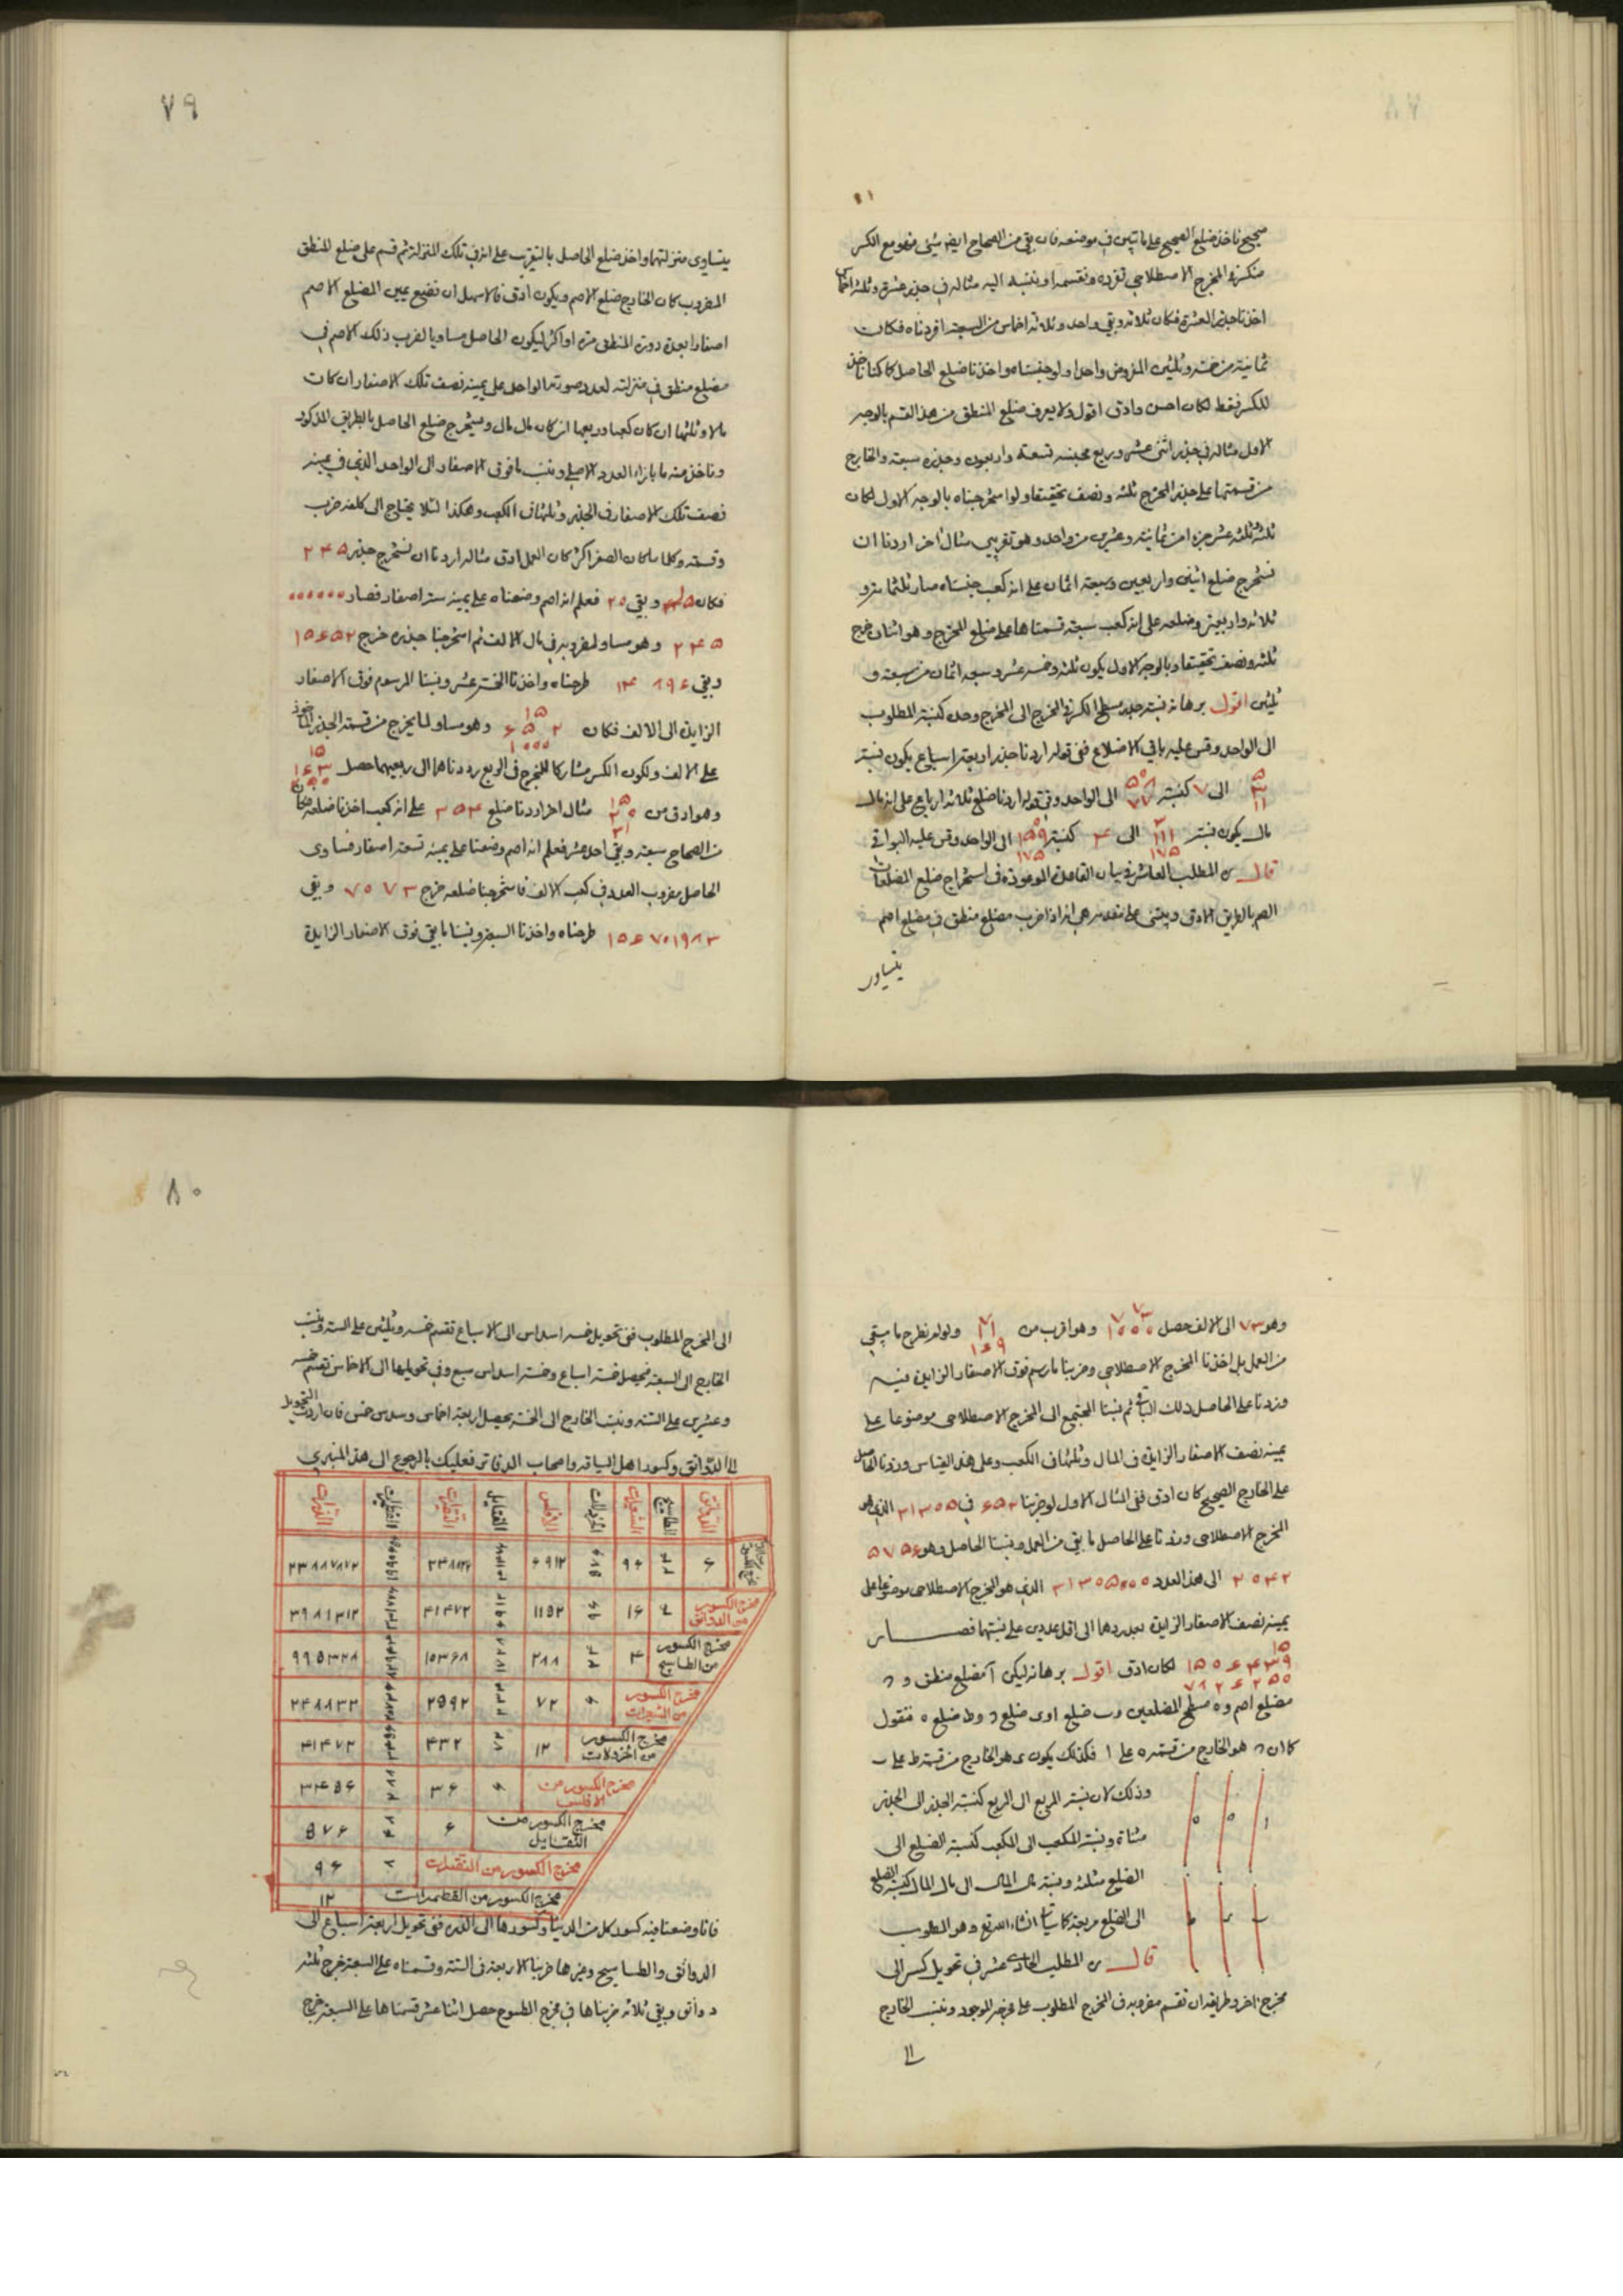 صحيح ناخذ ضلع الصحيح على ما تبين في موضعه فان بقي من الصحاح ايض شئ فهو مع الكسر
منكرة المخرج الاصطلاحي تفرده وتقسمه او تنسبه اليه مثاله في جذر عشرة وثلثه اخماس
اخذنا جذر العشرة فكان ثلاثه وبقي واحد وثلاثه اخماس من السبعة افردناه فكان
ثمانية من خمسه وثلثين المفروض واحدا ولو جنسناه واخذنا ضلع الحاصل كما كنا ناخذ
للكسر فقط لكان احسن وادق اقول ولا يعرف ضلع المنطق من هذ القسم بالوجه
الاول مثاله في جذر اثنى عشر وربع مجنسه تسعة واربعون وجذره سبعة والخارج
من قسمتها على جذر المخرج ثلثه ونصف تحقيقا ولو استخرجناه بالوجه الاول لكان
ثلثة ثلثه عشر جزء امن ثمانية وعشرين من واحد وهو تقريبي مثال اخر اردنا ان
نستخرج ضلع اثنين واربعين وسبعة اثمان على انه كعب جنسناه صار ثلثمائة و
ثلاثه واربعين وضلعه على انه كعب سبعة قسمناها على ضلع المخرج وهو اثنان خرج
ثلثه ونصف تحقيقا وبالوجه الاول يكون ثلثه وخمسه عشر وسبعه اثمان من سبعة و
ثلثين اقول برهانه نسبة جذر مسطح الكسر في المخرج الى المخرج وحده كنسبة المطلوب
الى الواحد وقس عليه باقي الاضلاع ففي قوله اردنا جذر اربعة اسباع يكون نسبة
الى ٧ كنسبة الى الواحد وفي قوله اردنا ضلع ثلاثه ارباع على انه مال
مال يكون نسبة الى ٤ كنسبة الى الواحد وقس عليه البواقي
قال المطلب العاشر في بيان القاعدة الموعوده في استخراج ضلع المضلعات
الصم بالطريق الادق ويبتنى على مقدمه هي انه اذا ضرب مضلع منطق في مضلع اصم
يتساوى
٧٩
يتساوى منزلتهما واخذ ضلع الحاصل بالتقريب على انه في تلك المنزلة ثم قسم على ضلع المنطق
المضروب كان الخارج ضلع الاصم ويكون ادق فالاسهل ان نضع يمين المضلع الاصم
اصفارا بعدة دورة المنطق مرة او اكثر ليكون الحاصل مساويا لضرب ذلك الاصم في
مضلع منطق في منزلته لعدد صورته الواحد على يمينه نصف تلك الاصفار ان كان
مالا وثلثها ان كان كعبا وربعها ان كان مال مال ونستخرج ضلع الحاصل بالطريق المذكور
وناخذ منه ما بازاء العدد الاصلي وننسب ما فوق الاصفار الى الواحد الذي في يمينه
نصف تلك الاصفار في الجذر وثلثها في الكعب وهكذا لئلا يحتاج الى كلفة ضرب
وقسمة وكلما كان الصفر اكثر كان العمل ادق مثاله اردنا ان نستخرج جذر ٢٤٥
فكان ١٥ وبقي ٢٠ فعلم انه اصم وضعناه على يمينه ستة اصفار فصار ٠٠٠٠٠٠
٢٤٥ وهو مساو لمضروبه في مال الالف ثم استخرجنا جذره خرج ١٥٦٥٢
وبقي طرحناه واخذنا الخمسة عشر ونسبنا المرسوم فوق الاصفار
الزايدة الى الالف فكان ١٥ ٦٥٢ ١٠٠٠ وهو مساو لما يخرج من قسمة الجذر الماخوذ
على الالف ولكون الكسر مشاركا للمخرج في الربع رددناهما الى ربعيهما حصل ١٥ ١٦٣ ٢٥٠
وهو ادق من ١٥ ٢٠ ٣١ مثال اخر اردنا ضلع ٣٥٤ على انه كعب اخذنا ضلعه فكان
من الصحاح سبعة وبقي احد عشر فعلم انه اصم وضعنا على يمينه تسعة اصفار فساوى
الحاصل مضروب العدد في كعب الالف فاستخرجنا ضلعه خرج ٧٠٧٣ وبقي
١٥٦٧٠١٩٨٣ طرحناه واخذنا السبعة ونسبنا ما بقي فوق الاصفار الزايدة
وهو ٧٣ الى الالف حصل ٧ ٧٣ ١٠٠٠ وهو اقرب من ٧ ١١ ١٦٩ ولو لم نطرح ما بقي
من العمل بل اخذنا المخرج الاصطلاحي وضربنا ما رسم فوق الاصفار الزايدة فيه
وزدنا على الحاصل ذلك الباقي ثم نسبنا المجتمع الى المخرج الاصطلاحى موضوعا على
يمينه نصف الاصفار الزايدة في المال وثلثها في الكعب وعلى هذ القياس وزدنا الحاصل
على الخارج الصحيح كان ادق ففي المثال الاول لو ضربنا ٦٥٢ في ٣١٣٠٥ الذي هو
المخرج الاصطلاحى وزدنا على الحاصل ما بقي من العمل ونسبنا الحاصل وهو
الى هذ العدد ٣١٣٠٥٠٠٠ الذي هو المخرج الاصطلاحى موضوعا على
يمينه نصف الاصفار الزايدة بعد ردها الى اقل عددين على نسبتها فصار
لكان ادق اقول برهانه ليكن آ مضلع منطق و
مضلع اصم و ه مسطح المضلعين و ب ضلع ا و ى ضلع و ط ضلع ه فنقول
كما ان هو الخارج من قسمة ه على ا فكذلك يكون ى هو الخارج من قسمة ط على ب
وذلك لان نسبة المربع الى المربع كنسبة الجذر الى الجذر
مثناة ونسبة المكعب الى المكعب كنسبة الضلع الى
الضلع مثلثه ونسبة مال المال الى مال المال كنسبة الضلع
الى الضلع مربعة كما سيأتي انشاء الله تع وهو المطلوب
قال المطلب الحادي عشر في تحويل كسر الى
مخرج اخر وطريقه ان تقسم مضروبه في المخرج المطلوب على مخرجه الموجود وننسب الخارج
الى
٨٠
الى المخرج المطلوب ففي تحويل خمسه اسداس الى الاسباع نقسم خمسه وثلثين على الستة وننسب
الخارج الى السبعة فيحصل خمسة اسباع وخمسة اسداس سبع وفي تحويلها الى الاخماس نقسم خمسه
وعشرين على الستة وننسب الخارج الى الخمسة يحصل اربعة اخماس وسدس خمس فان اردت التحويل
الى الدوانق وكسور اهل السياقه واصحاب الدفاتر فعليك بالرجوع الى هذ المنبرى
الدوانق الطساسيج الشعيرات الخردلات الافلس الفتايل النقيرات القطميرات الذرات
مخرج الكسور ٦ ٢٤ ٩٦ ٦٩١٢ ٢٣٨٨٧٨٧٢
مخرج الكسور من الدوانق ٤ ١٦ ١١٥٢ ٤١٤٧٢ ٣٩٨١٣١٢
مخرج الكسور من الطساسيج ٤ ٢٨٨ ١٠٣٦٨ ٩٩٥٣٢٨
مخرج الكسور من الشعيرات ٦ ٧٢ ٢٥٩٢ ٢٤٨٨٣٢
مخرج الكسور من الخردلات ١٢ ٤٣٢ ٤١٤٧٢
مخرج الكسور من الافلس ٦ ٣٦ ٣٤٥٦
مخرج الكسور من الفتايل ٦ ٥٧٦
مخرج الكسور من النقيرات ٨ ٩٦
مخرج الكسور من القطميرات ١٢
فانا وضعنا فيه كسور كل من الدينار وكسورها الى الذره ففي تحويل اربعة اسباع الى
الدوانق والطساسيج وغيرها ضربنا الاربعة في الستة وقسمناه على السبعة خرج ثلثه
دوانق وبقي ثلاثه ضربناها في مخرج الطسوج حصل اثنا عشر قسمناها على السبعة خرج